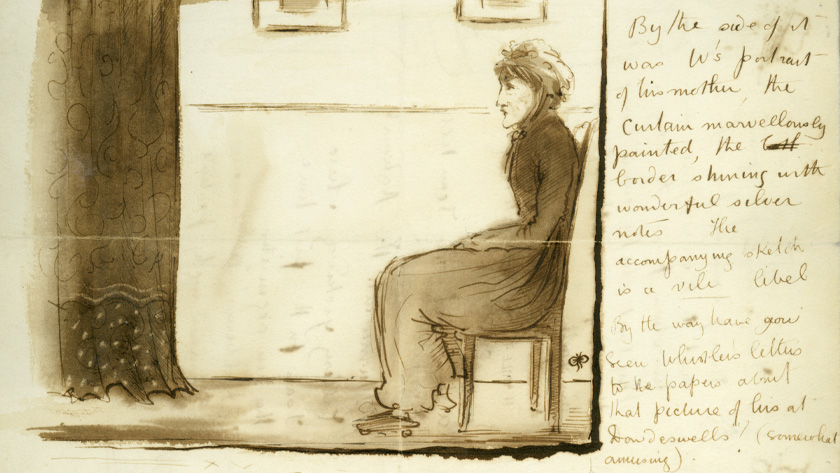 By the side of it
was W's portrait
of his mother, the
Curtain marvellously
painted, the
border shining with
wonderful silver
notes The
accompanying sketch
is a vile libel
By the way have you
seen Whistler's letters
to the papers about
that picture of his at
Dowdeswells' (somewhat
amusing).